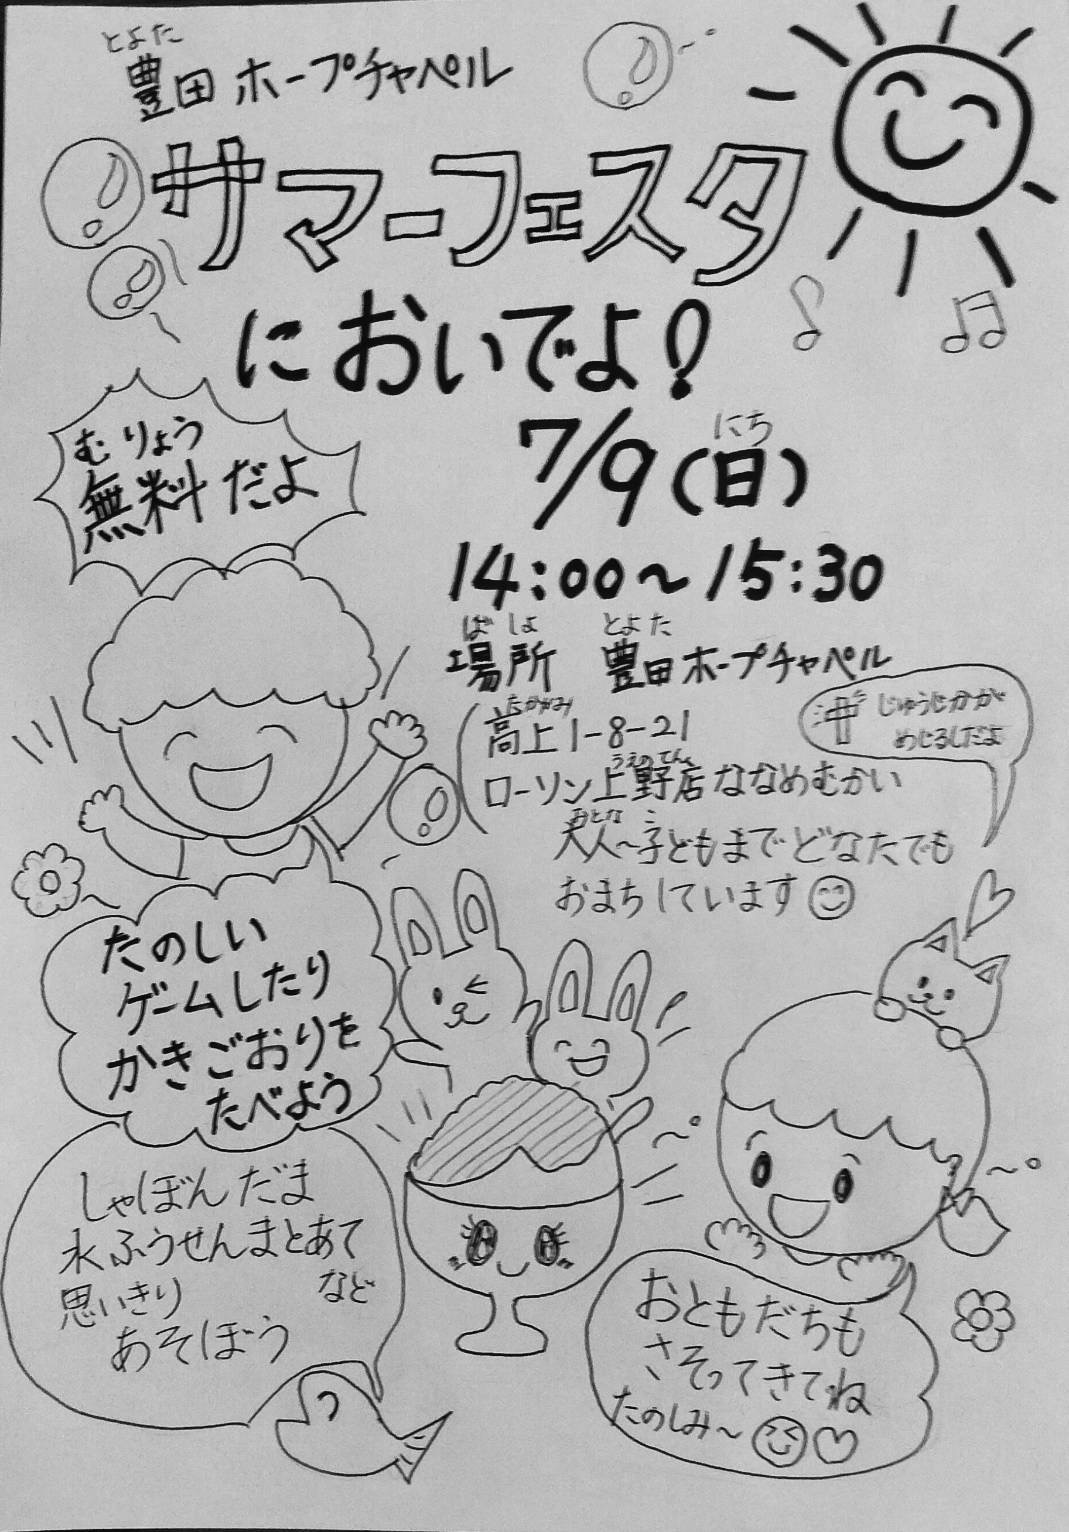 とよた
豊田ホープチャペル
サマーフェスタ
においでよ!
むりょう
無料だよ
にち
7/9(日)
14:00〜15:30
ばしょ とよた
場所 豊田ホープチャペル
たかがみ
高上1-8-21
うえのてん
ローソン上野店ななめむかい
じゅうじかが
めじるしだよ
おとな こ
大人〜子どもまでどなたでも
おまちしています
たのしい
ゲームしたり
かきごおりを
たべよう
しゃぼんだま
水ふうせんまとあて
など
思いきり
あそぼう
おともだちも
さそってきてね
たのしみ〜